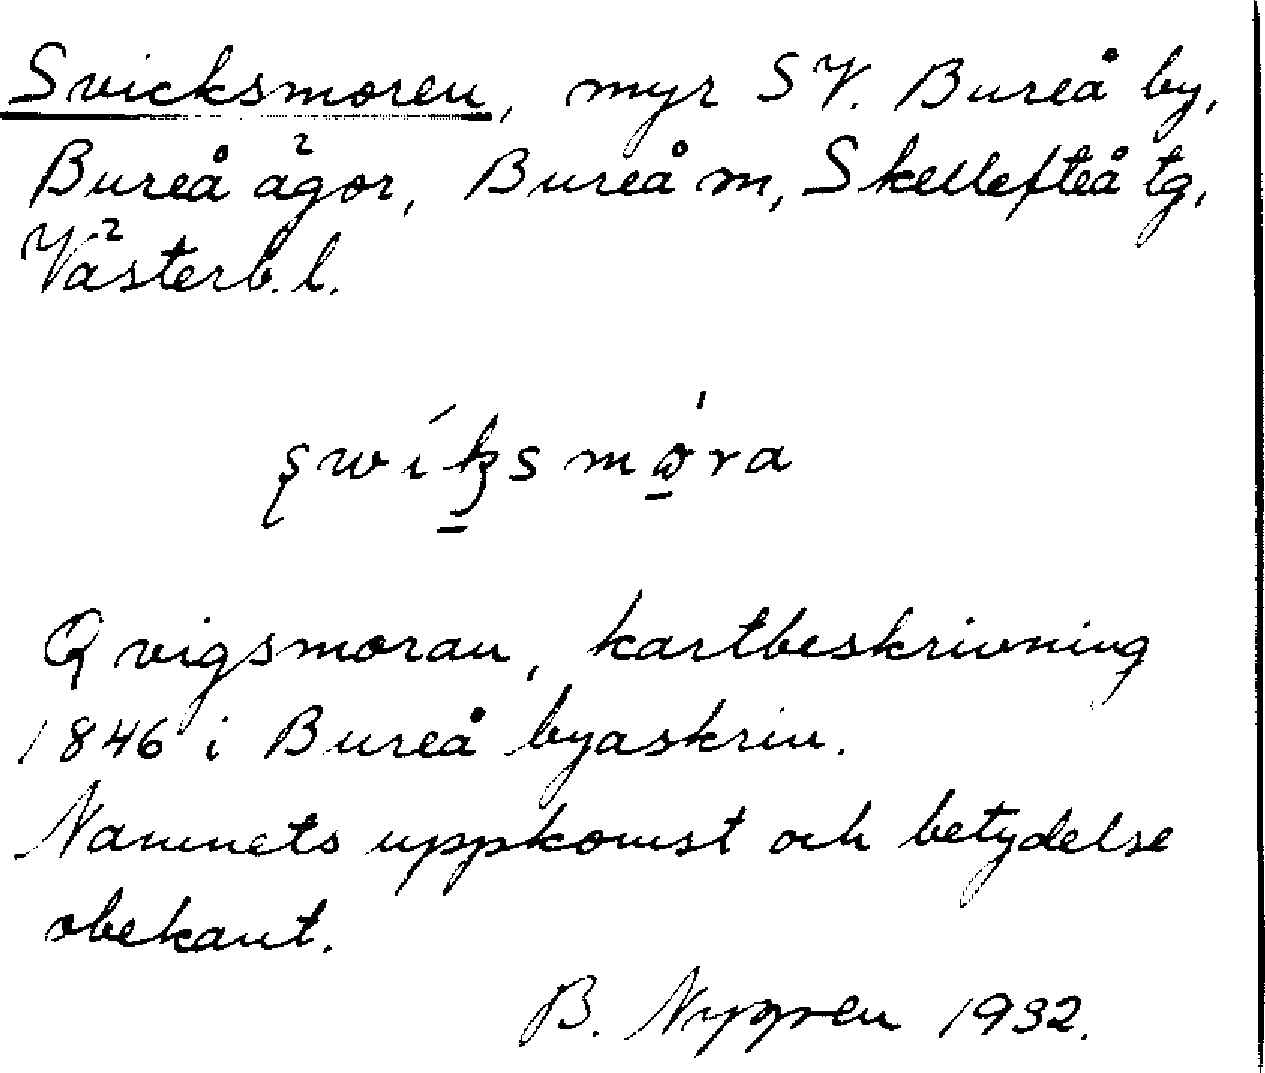 Svicksmoren, myr SV. Bureå by,
Bureå ägor, Bureå m, Skellefteå tg,
Västerb. l.
Qvigsmoran, kartbeskrivning
1846 i Bureå byaskrin.
Namnets uppkomst och betydelse
obekant.
B. Nygren 1932.